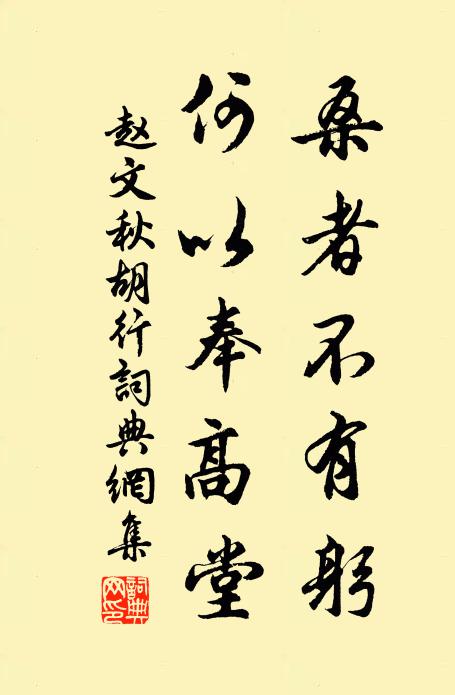 桑者不有躬
何以奉高堂
赵文秋胡行詞典網集
詞典网印